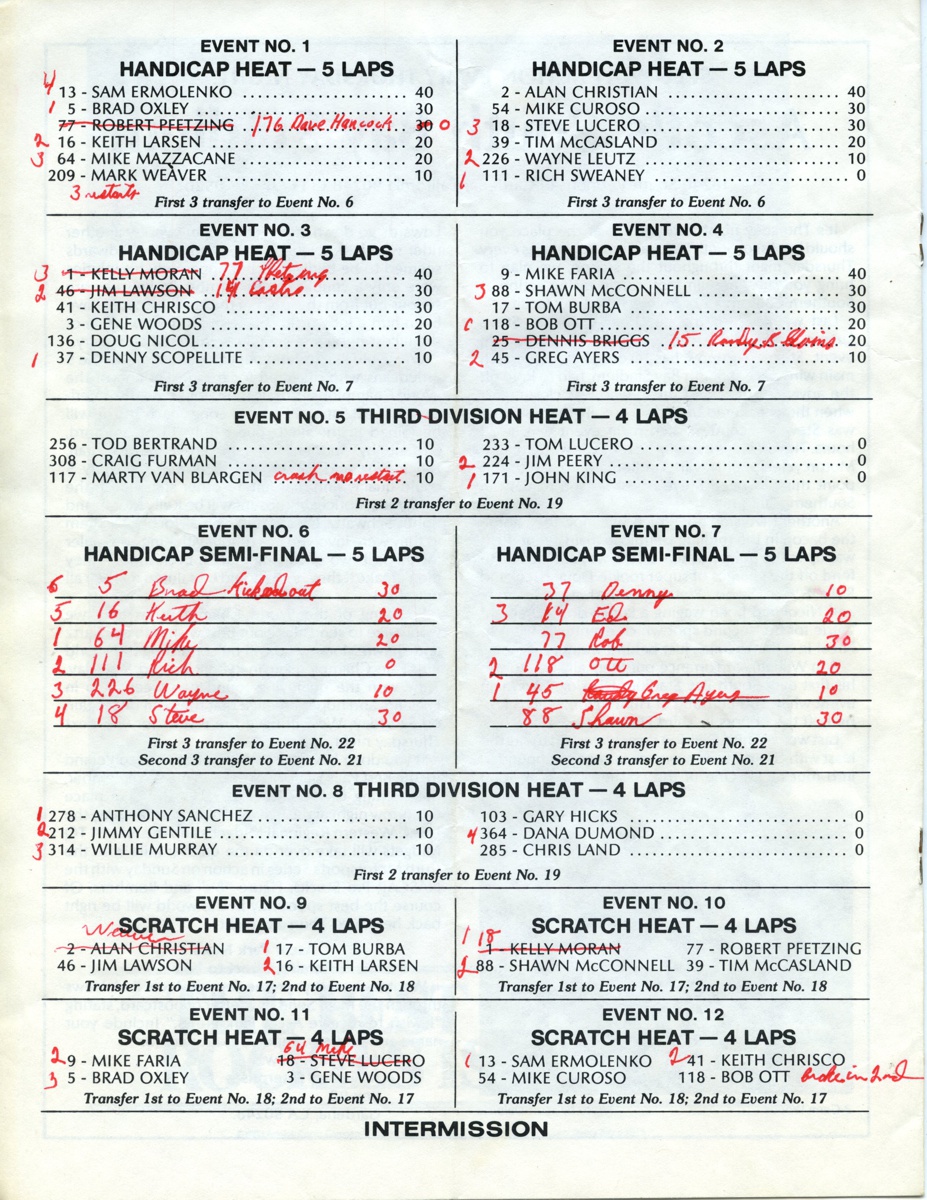 EVENT NO. 1
HANDICAP HEAT — 5 LAPS
4 13 - SAM ERMOLENKO 40
1 5 - BRAD OXLEY 30
77 - ROBERT PFETZING 176 Dave Hancock 30 0
2 16 - KEITH LARSEN 20
3 64 - MIKE MAZZACANE 20
209 - MARK WEAVER 10
3 restarts
First 3 transfer to Event No. 6
EVENT NO. 2
HANDICAP HEAT — 5 LAPS
2 - ALAN CHRISTIAN 40
54 - MIKE CUROSO 30
3 18 - STEVE LUCERO 30
39 - TIM McCASLAND 20
2 226 - WAYNE LEUTZ 10
1 111 - RICH SWEANEY 0
First 3 transfer to Event No. 6
EVENT NO. 3
HANDICAP HEAT — 5 LAPS
3 1 - KELLY MORAN 77 Pfetzing 40
2 46 - JIM LAWSON 14 Castro 30
41 - KEITH CHRISCO 30
3 - GENE WOODS 20
136 - DOUG NICOL 10
1 37 - DENNY SCOPELLITE 10
First 3 transfer to Event No. 7
EVENT NO. 4
HANDICAP HEAT — 5 LAPS
9 - MIKE FARIA 40
3 88 - SHAWN McCONNELL 30
17 - TOM BURBA 30
118 - BOB OTT 20
25 - DENNIS BRIGGS 15 Randy 20
2 45 - GREG AYERS 10
First 3 transfer to Event No. 7
EVENT NO. 5 THIRD DIVISION HEAT — 4 LAPS
256 - TOD BERTRAND 10
308 - CRAIG FURMAN 10
117 - MARTY VAN BLARGEN crash no restart 10
233 - TOM LUCERO 0
2 224 - JIM PEERY 0
1 171 - JOHN KING 0
First 2 transfer to Event No. 19
EVENT NO. 6
HANDICAP SEMI-FINAL — 5 LAPS
6 5 Brad Kicked out 30
5 16 Keith 20
1 64 Mike 20
2 111 Rich 0
3 226 Wayne 10
4 18 Steve 30
First 3 transfer to Event No. 22
Second 3 transfer to Event No. 21
EVENT NO. 7
HANDICAP SEMI-FINAL — 5 LAPS
37 Denny 10
3 14 Ed 20
77 Rob 30
2 118 Ott 20
1 45 Greg Ayers 10
88 Shawn 30
First 3 transfer to Event No. 22
Second 3 transfer to Event No. 21
EVENT NO. 8 THIRD DIVISION HEAT — 4 LAPS
1 278 - ANTHONY SANCHEZ 10
2 212 - JIMMY GENTILE 10
3 314 - WILLIE MURRAY 10
103 - GARY HICKS 0
4 364 - DANA DUMOND 0
285 - CHRIS LAND 0
First 2 transfer to Event No. 19
EVENT NO. 9
SCRATCH HEAT — 4 LAPS
Weaver
2 - ALAN CHRISTIAN 1 17 - TOM BURBA
46 - JIM LAWSON 2 16 - KEITH LARSEN
Transfer 1st to Event No. 17; 2nd to Event No. 18
EVENT NO. 10
SCRATCH HEAT — 4 LAPS
1 18
1 - KELLY MORAN 77 - ROBERT PFETZING
2 88 - SHAWN McCONNELL 39 - TIM McCASLAND
Transfer 1st to Event No. 17; 2nd to Event No. 18
EVENT NO. 11
SCRATCH HEAT — 4 LAPS
64 Mike
2 9 - MIKE FARIA 18 - STEVE LUCERO
3 5 - BRAD OXLEY 3 - GENE WOODS
Transfer 1st to Event No. 18; 2nd to Event No. 17
EVENT NO. 12
SCRATCH HEAT — 4 LAPS
1 13 - SAM ERMOLENKO 2 41 - KEITH CHRISCO
54 - MIKE CUROSO 118 - BOB OTT broke in 2nd
Transfer 1st to Event No. 18; 2nd to Event No. 17
INTERMISSION